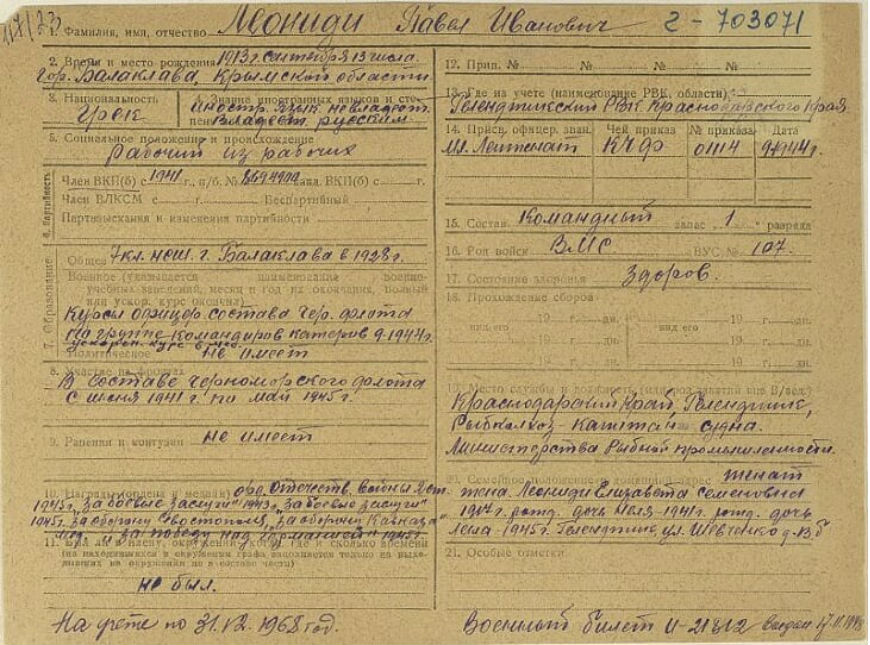 117/23
1. Фамилия, имя, отчество Леониди Павел Иванович Г-703071
2. Время и место рождения 1913 г. сентября 13 числа
гор. Балаклава, Крымской области
3. Национальность Грек
4. Знание иностранных языков и сте-
пень иностр. язык не владеет.
Владеет русским
5. Социальное положение и происхождение
Рабочий из рабочих
6. Партийность
Член ВКП(б) с 1941 г., п/б. № канд. ВКП(б) с г.
Член ВЛКСМ с г. Беспартийный
Партвзыскания и изменения партийности
7. Образование
Общее 7 кл. нсш. г. Балаклава в 1928 г.
Военное (указывается наименование военно-
учебных заведений, месяц и год их окончания, полный
или ускор. курс окончил)
Курсы офицер. состава Чер. флота
по группе командиров катеров 9-1944 г.
ускорен. курс 6 мес.
Политическое не имеет
8. Участие на фронтах
В составе черноморского флота
с июня 1941 г. по май 1945 г.
9. Ранения и контузии не имеет
10. Награды (ордена и медали) орд. Отечеств. войны
1945 г. „За боевые заслуги" 1943 „За боевые заслуги"
1945 г. „За оборону Севостополя, „За оборону Кавказа"
мед. „За победу над Германией" 1945 г.
11. Был ли в плену, окружении, когда, где и сколько времени
(на находившихся в окружении графа заполняется только на выхо-
дивших из окружения не в составе части)
не был.
На учете по 31.12.1968 год.
12. Прип. № № № №
13. Где на учете (наименование РВК, области)
Геленджикский РВК Краснодарского края
14. Присв. офицер. зван. Чей приказ № приказа Дата
Мл. Лейтенант КЧФ 01114 9-1944 г.
15. Состав Командный запас 1 разряда
16. Род войск ВМС ВУС № 107.
17. Состояние здоровья Здоров.
18. Прохождение сборов
19 г. дн. 19 г. дн.
вид его 19 г. дн. вид его 19 г. дн.
19 г. дн. 19 г. дн.
19. Место службы и должность (или род занятий вне В/вед.)
Краснодарский край, Геленджик,
Рыбколхоз капитан судна.
Министерства Рыбной промышленности.
20. Семейное положение и домашний адрес женат
жена. Леониди Елизавета Семеновна
1917 г. рожд. дочь 1941 рожд. дочь
Лена-1945 г. Геленджик, ул. Шевченко д.
21. Особые отметки
Военный билет выдан